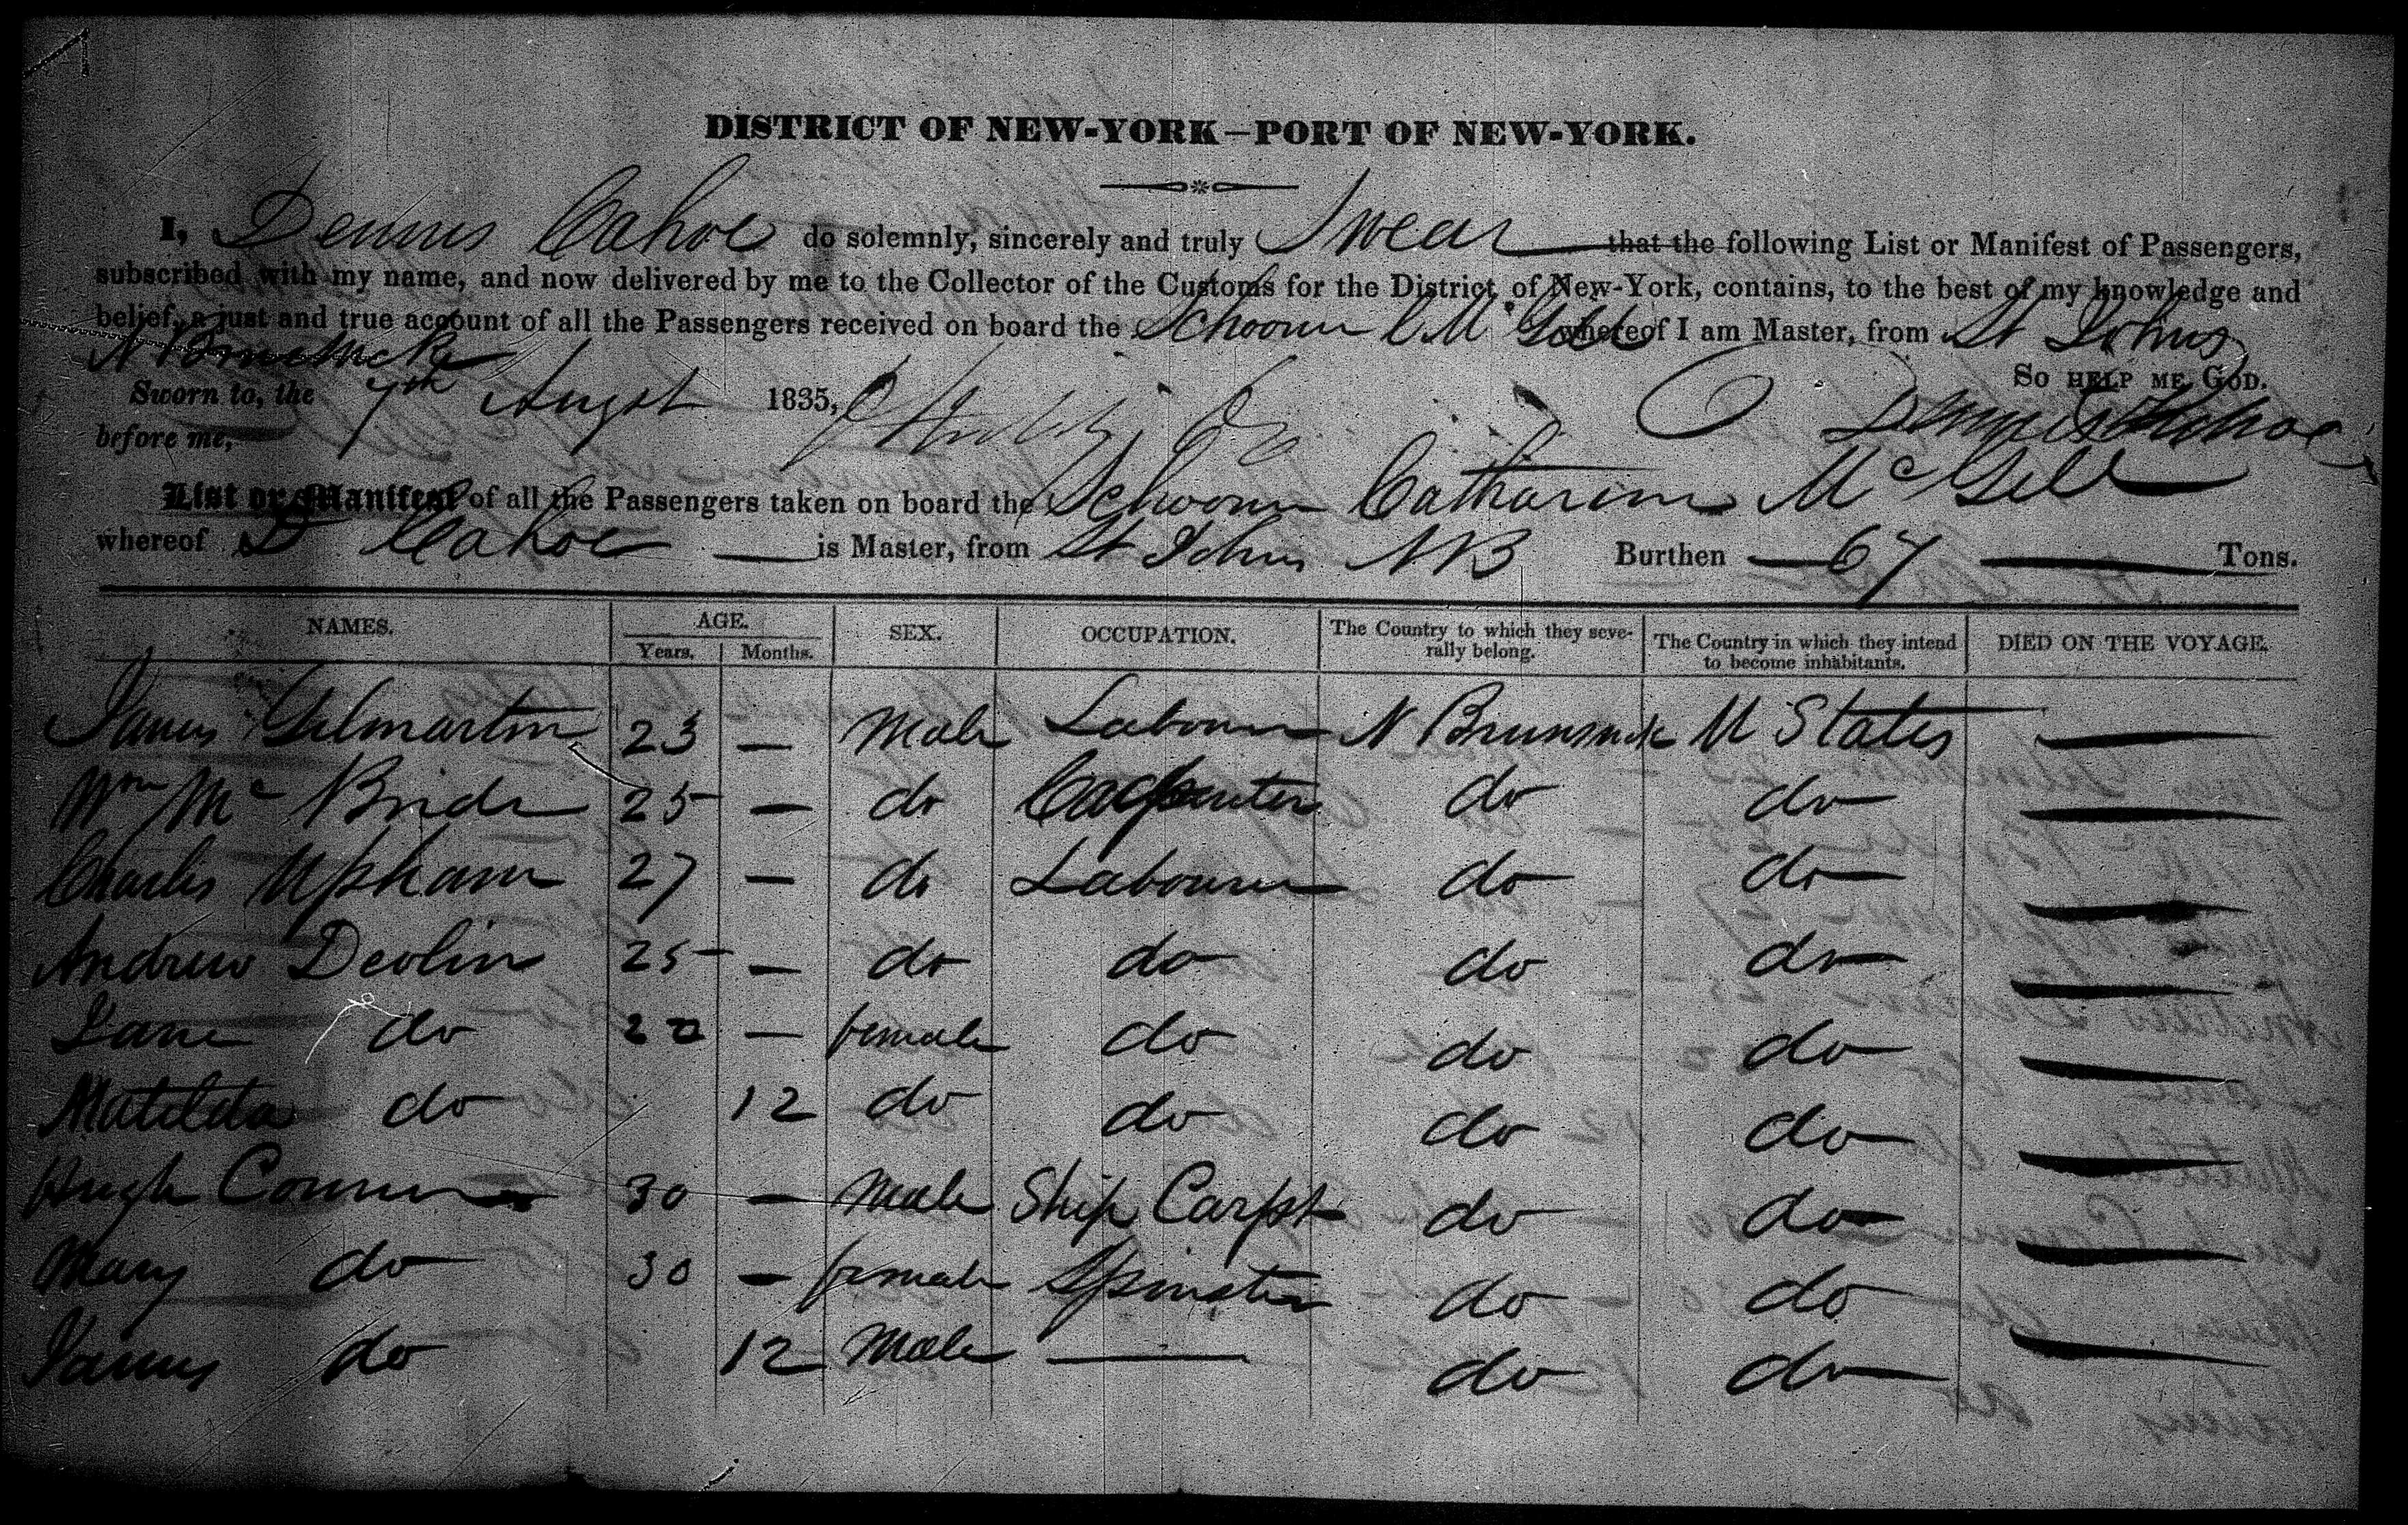 DISTRICT OF NEW-YORK—PORT OF NEW-YORK.
I, Dennis Cahoe do solemnly, sincerely and truly Swear that the following List or Manifest of Passengers,
subscribed with my name, and now delivered by me to the Collector of the Customs for the District of New-York, contains, to the best of my knowledge and
belief, a just and true account of all the Passengers received on board the Schooner C Mc Gill whereof I am Master, from St Johns
N Brunswick
So HELP ME GOD.
Sworn to, the 7th Augst 1835,
before me, Dennis Cahoe
List or Manifest of all the Passengers taken on board the Schooner Catharine Mc Gill
whereof D Cahoe is Master, from St Johns NB Burthen 67 Tons.
NAMES. AGE. SEX. OCCUPATION. The Country to which they seve- The Country in which they intend DIED ON THE VOYAGE.
Years. Months. rally belong. to become inhabitants.
James Gilmartin 23 — Male Labourer N Brunswick U States —
Wm Mc Bride 25 — do Carpenter do do —
Charles Upham 27 — do Labourer do do —
Andrew Devlin 25 — do do do do —
Jane do 22 — female do do do —
Matilda do 12 do do do do —
Hugh Conner 30 — Male Ship Carpt do do —
Mary do 30 — female Spinster do do —
James do 12 Male — do do